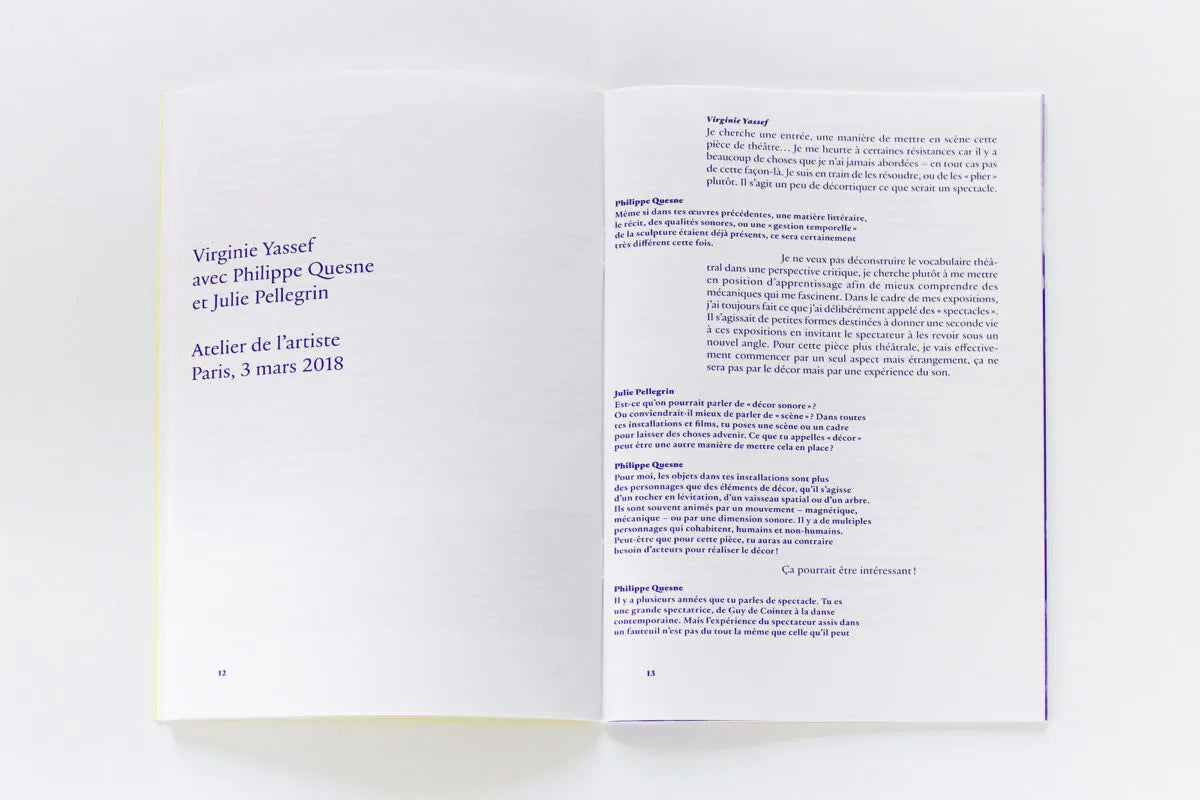 Virginie Yassef
avec Philippe Quesne
et Julie Pellegrin
Atelier de l’artiste
Paris, 3 mars 2018
12
Virginie Yassef
Je cherche une entrée, une manière de mettre en scène cette
pièce de théâtre… Je me heurte à certaines résistances car il y a
beaucoup de choses que je n’ai jamais abordées – en tout cas pas
de cette façon-là. Je suis en train de les résoudre, ou de les « plier »
plutôt. Il s’agit un peu de décortiquer ce que serait un spectacle.
Philippe Quesne
Même si dans tes œuvres précédentes, une matière littéraire,
le récit, des qualités sonores, ou une « gestion temporelle »
de la sculpture étaient déjà présents, ce sera certainement
très différent cette fois.
Je ne veux pas déconstruire le vocabulaire théâ-
tral dans une perspective critique, je cherche plutôt à me mettre
en position d’apprentissage afin de mieux comprendre des
mécaniques qui me fascinent. Dans le cadre de mes expositions,
j’ai toujours fait ce que j’ai délibérément appelé des « spectacles ».
Il s’agissait de petites formes destinées à donner une seconde vie
à ces expositions en invitant le spectateur à les revoir sous un
nouvel angle. Pour cette pièce plus théâtrale, je vais effective-
ment commencer par un seul aspect mais étrangement, ça ne
sera pas par le décor mais par une expérience du son.
Julie Pellegrin
Est-ce qu’on pourrait parler de « décor sonore » ?
Ou conviendrait-il mieux de parler de « scène » ? Dans toutes
tes installations et films, tu poses une scène ou un cadre
pour laisser des choses advenir. Ce que tu appelles « décor »
peut être une autre manière de mettre cela en place ?
Philippe Quesne
Pour moi, les objets dans tes installations sont plus
des personnages que des éléments de décor, qu’il s’agisse
d’un rocher en lévitation, d’un vaisseau spatial ou d’un arbre.
Ils sont souvent animés par un mouvement – magnétique,
mécanique – ou par une dimension sonore. Il y a de multiples
personnages qui cohabitent, humains et non-humains.
Peut-être que pour cette pièce, tu auras au contraire
besoin d’acteurs pour réaliser le décor !
Ça pourrait être intéressant !
Philippe Quesne
Il y a plusieurs années que tu parles de spectacle. Tu es
une grande spectatrice, de Guy de Cointet à la danse
contemporaine. Mais l’expérience du spectateur assis dans
un fauteuil n’est pas du tout la même que celle qu’il peut
13